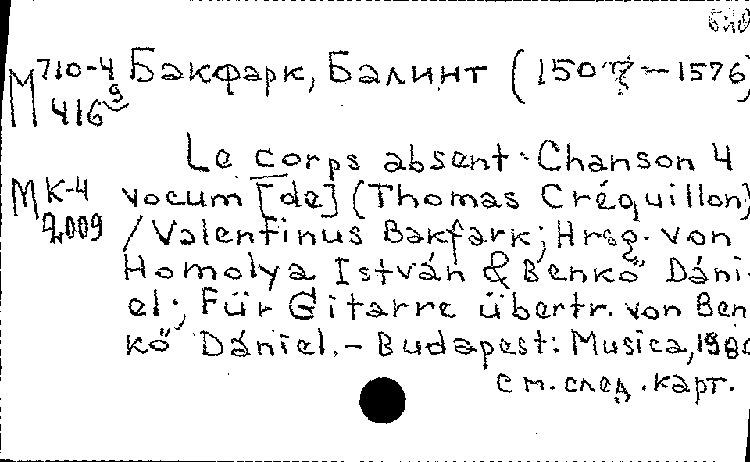 М 710-4 Бакфарк, Балинт (1507—1576)
416 9
Le corps absent. Chanson 4
МК-4 vocum [de] (Thomas Créquillon)
2009 / Valentinus Bakfark; Hrsg. von
Homolya István & Benkő Dáni-
el; Für Gitarre übertr. von Ben
kő Dániel. – Budapest: Musica,
см. след. карт.